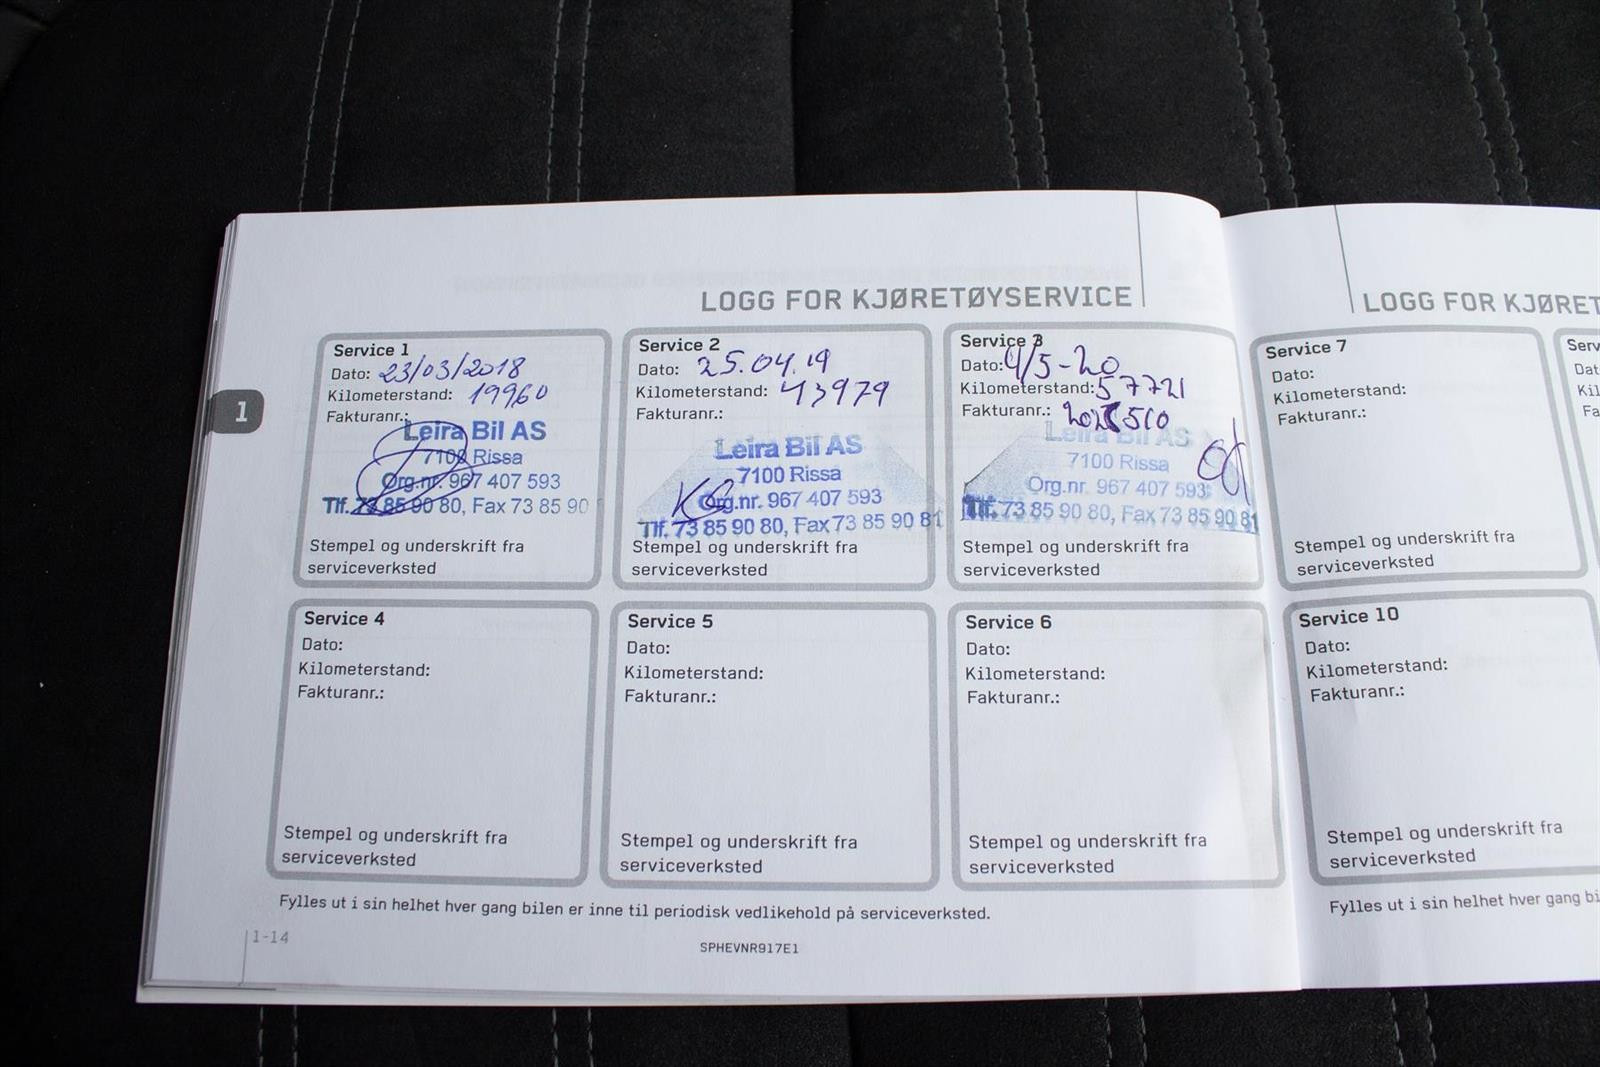 LOGG FOR KJØRETØYSERVICE
1
Service 1
Dato: 23/03/2018
Kilometerstand: 19960
Fakturanr.:
Leira Bil AS
7100 Rissa
Org.nr. 967 407 593
Tlf. 73 85 90 80, Fax 73 85 90
Stempel og underskrift fra
serviceverksted
Service 2
Dato: 25.04.19
Kilometerstand: 43979
Fakturanr.:
Leira Bil AS
7100 Rissa
Org.nr. 967 407 593
Tlf. 73 85 90 80, Fax 73 85 90 81
Stempel og underskrift fra
serviceverksted
Service 3
Dato: 4/5-20
Kilometerstand: 57721
Fakturanr.:
Leira Bil AS
7100 Rissa
Org.nr. 967 407 593
Tlf. 73 85 90 80, Fax 73 85 90 81
Stempel og underskrift fra
serviceverksted
Service 4
Dato:
Kilometerstand:
Fakturanr.:
Stempel og underskrift fra
serviceverksted
Service 5
Dato:
Kilometerstand:
Fakturanr.:
Stempel og underskrift fra
serviceverksted
Service 6
Dato:
Kilometerstand:
Fakturanr.:
Stempel og underskrift fra
serviceverksted
Fylles ut i sin helhet hver gang bilen er inne til periodisk vedlikehold på serviceverksted.
1-14
SPHEVNR917E1
LOGG FOR KJØRET
Service 7
Dato:
Kilometerstand:
Fakturanr.:
Stempel og underskrift fra
serviceverksted
Serv
Dat
Ki
Fa
Service 10
Dato:
Kilometerstand:
Fakturanr.:
Stempel og underskrift fra
serviceverksted
Fylles ut i sin helhet hver gang bi